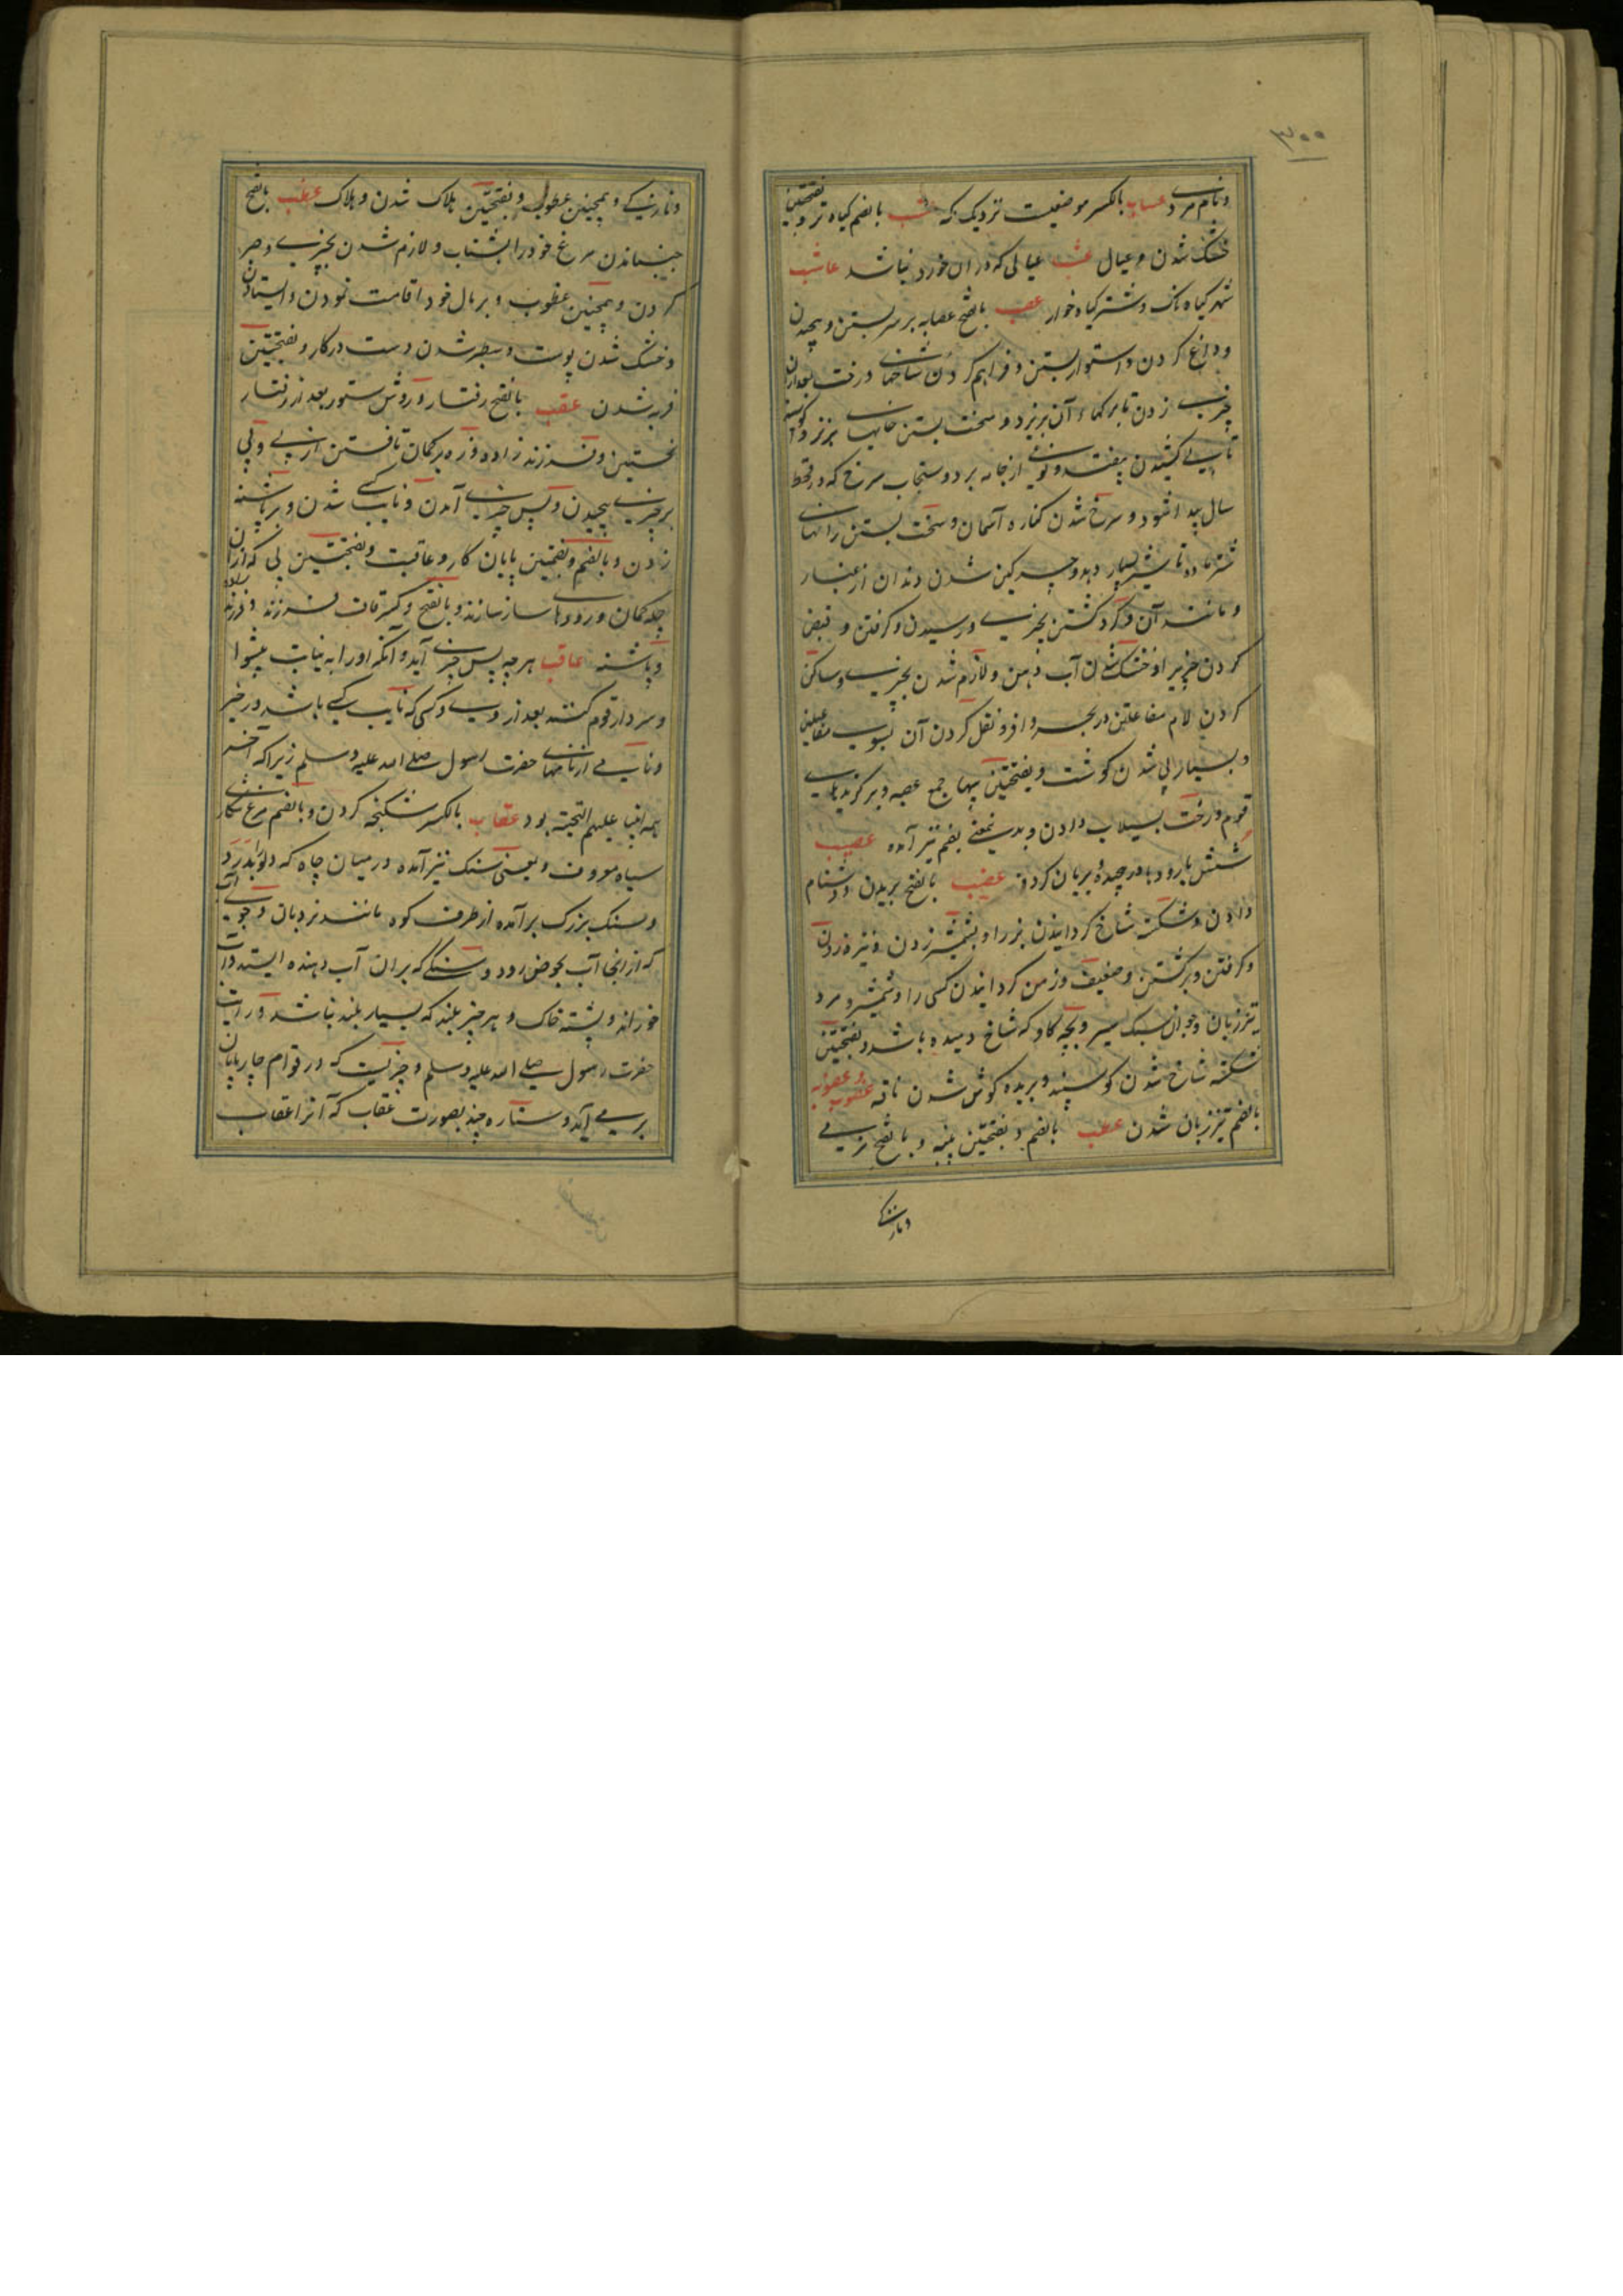 ۳۰۰
ونام مردے عساب بالکسر موضعیست نزدیک مکه عشب بالضم گیاه تر و بفتحتین
خشک شدن و عیال عشبه عیالی که دران خورد نباشد عاشب
شهر گیاه ناک و شتر گیاه خوار عصب بالفتح عصابه بر سر بستن و پیچیدن
و داغ کردن و استوار بستن و فراهم کردن شاخهای درخت بعد ازان
چیزے زدن تا برگهاء آن بریزد و سخت بستن خایهاے بز نر و گوسپند
تا بے کشیدن بیفتد و نوعے از جامه برد و سحاب سرخ که در قحط
سال پیدا شود و سرخ شدن کناره آسمان و سخت بستن رانهاے
شتر ماده تا شیر بسیار دهد و چرگین شدن دندان از غبار
و مانند آن و گرد گشتن بچیزے و رسیدن و گرفتن و قبض
کردن چیزیرا و خشک شدن آب دهن و لازم شدن بچیزے و ساکن
کردن لام مفاعلتن در بحر وافر و نقل کردن آن بسوے مفاعیلن
و بسیار پی شدن گوشت و بفتحتین پیها جمع عصبه و برگزیدهاے
قوم و درخت بسیلاب دادن و بدینمعنے بضم نیز آمده عصیب
شش با رودها در چیده بریان کرده عضب بالفتح بریدن و دشنام
دادن و شکسته شاخ گردانیدن بز را و بشمشیر زدن و نیزه زدن
و گرفتن و برگشتن و ضعیف و زمن گردانیدن کسی را و شمشیر و مرد
تیز زبان و جوان سبک سیر و بچه گاو که شاخ دمیده باشد و بفتحتین
شکسته شاخ شدن گوسپند و بریده گوش شدن ناقه عضوب و عضوبه
بالضم تیز زبان شدن عطب بالضم و بفتحتین پنبه و بالفتح نرمے
ونازکے
ونازکے و همچنین عطوب و بفتحتین هلاک شدن و هلاک عظب بالفتح
جنبانیدن مرغ خود را بشتاب و لازم شدن بچیزے و صبر
کردن و همچنین عظوب و بر مال خود اقامت نمودن و ایستادن
و خشک شدن پوست و سطبر شدن دست در کار و بفتحتین
فربه شدن عقب بالفتح رفتار و روش ستور بعد از رفتار
نخستین و فرزند زاده و زه بر کمان تافتن از پے و پی
بر چیزے پیچیدن و پس چیزے آمدن و نایب کسے شدن و بر پاشنه
زدن و بالضم و بضمتین پایان کار و عاقبت و بفتحتین پی که ازان
چله کمان و رودهاے ساز سازند و بالفتح و کسر قاف فرزند و فرزند زاده
و پاشنه عاقب هر چه پس چیزے آید و آنکه او را به نیابت پیشوا
و سردار قوم کنند بعد از وے و کسی که نایب کسے باشد در خیر
و نامے از نامهاے حضرت رسول صلے الله علیه وسلم زیرا که آخر
همه انبیا علیهم التحیته بود عقاب بالکسر شکنجه کردن و بالضم مرغ شکارے
سیاه معروف و بمعنی سنگ نیز آمده در میان چاه که دلو را بدرد
و سنگ بزرگ برآمده از طرف کوه مانند نردبان و جوے آب
که از انجا آب بحوض رود و سنگے که بران آب دهنده ایستد و آب
خوراند و پشته خاک و هر چیز بلند که بسیار بلند نباشد و رایت
حضرت رسول صلے الله علیه وسلم و چیزیست که در قوایم چارپایان
برمے آید و ستاره چند بصورت عقاب که آنرا عقاب